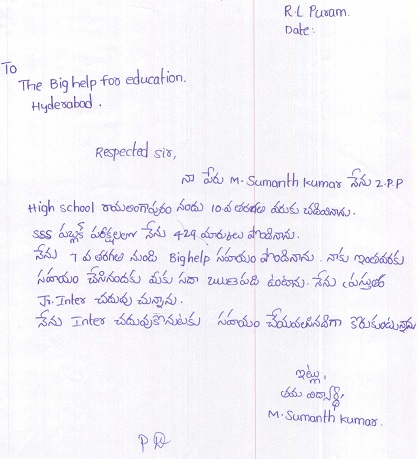 R.L Puram.
Date:
To
The Big help for education.
Hyderabad.
Respected sir,
నా పేరు M. Sumanth kumar నేను Z.P.P
High school రాయలింగాపురం నందు 10వ తరగతి వరకు చదివినాను.
SSS పబ్లిక్ పరీక్షలలో నేను 429 మార్కులు పొందినాను.
నేను 7వ తరగతి నుండి Big help సహాయం పొందినాను. నాకు ఇంతవరకు
సహాయం చేసినందుకు మీకు సదా ఋణపడి ఉంటాను. నేను ప్రస్తుతం
Jr. Inter చదువు చున్నాను.
నేను Inter చదువుకొనుటకు సహాయం చేయవలసినదిగా కోరుకుంటున్నాను
ఇట్లు,
తమ విద్యార్థి,
M. Sumanth kumar.